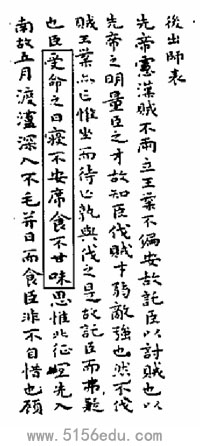 後出師表
先帝慮漢賊不兩立王業不偏安故託臣以討賊也以
先帝之明量臣之才故知臣伐賊才弱敵強也然不伐
賊王業亦亡惟坐而待亡孰與伐之是故託臣而弗疑
也臣受命之日寢不安席食不甘味思惟北征宜先入
南故五月渡瀘深入不毛并日而食臣非不自惜也顧
www.5156edu.com